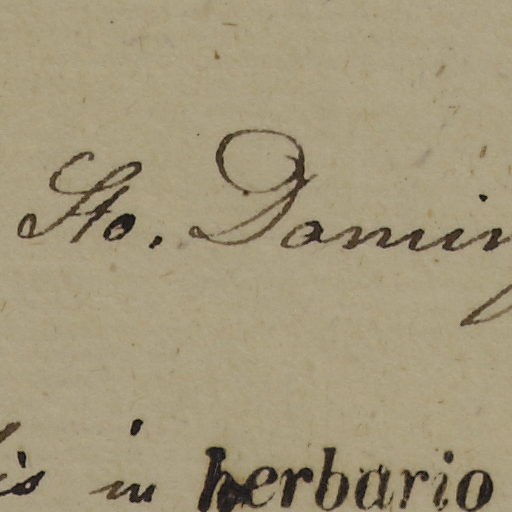 Sto. Doming
is in herbario